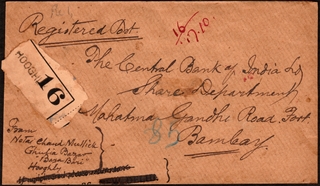 Registered Post.
16
17.10.
The Central Bank of India Ld
Share Department
Mahatma Gandhi Road Fort
Bombay
HOOGHLY
16
From
Chand Mullick
Hooghly